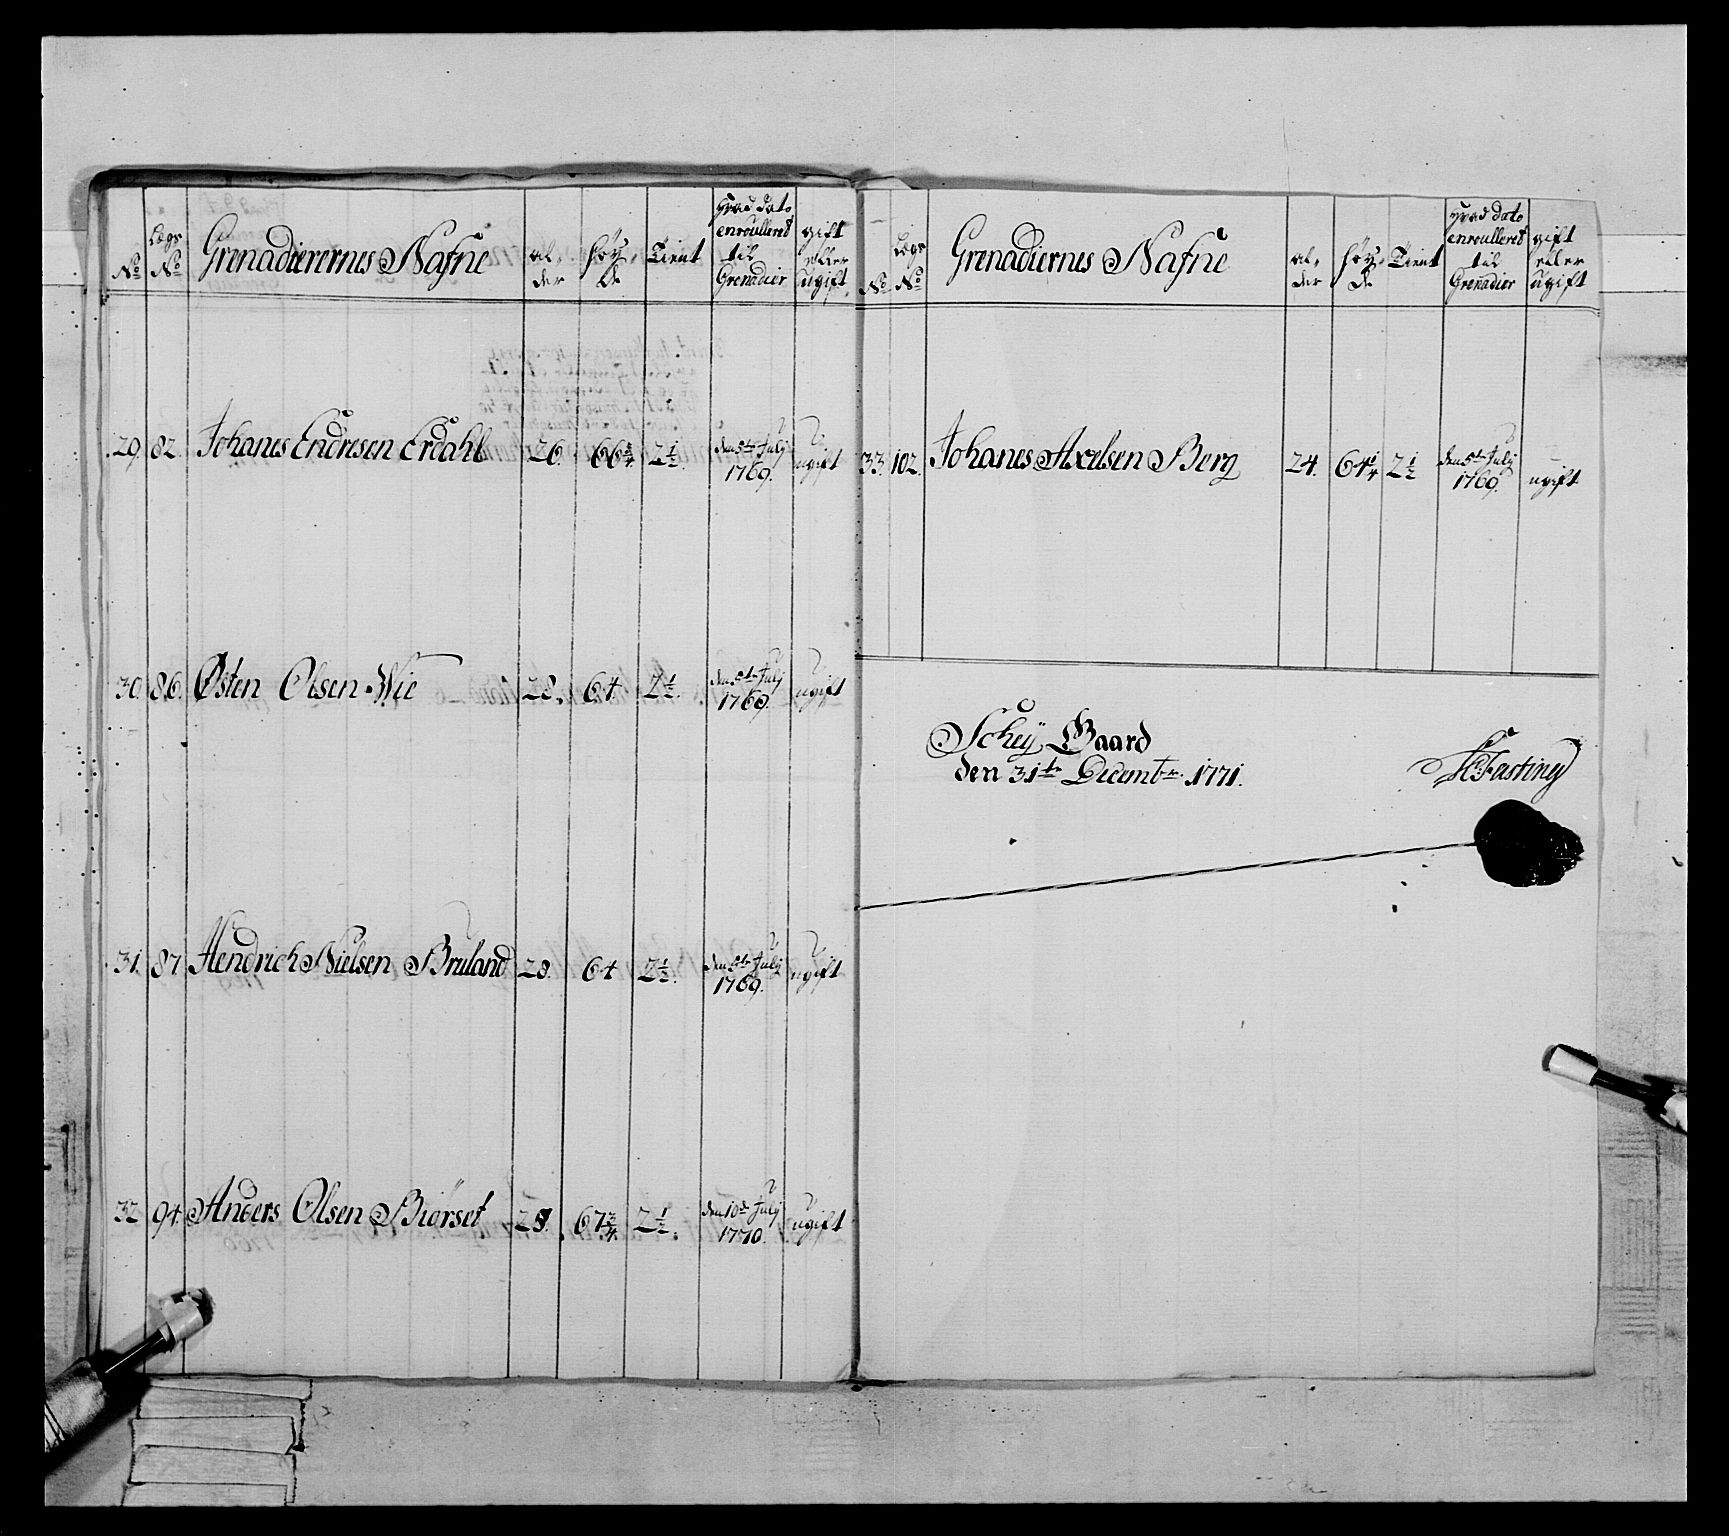 No
Lægs No
Grenadierernes Nafne
al, der
Høy, de
Tient
hvad dato enroulleret til Grenadier
gift eller ugift
29. 82. Johanes Endresen Erdahl 26. 66 3/4 2 1/2. den 5te July 1769. ugift
30. 86. Østen Olsen Wie 28. 64. 2 1/2. den 5te July 1769. ugift
31. 87. Hendrich Nielsen Bruland 28. 64 2 1/2. den 5te July 1769. ugift
32 94. Anders Olsen Biørset 28. 67 3/4. 2 1/2. den 10de July 1770. ugift
No
Lægs No
Grenadiernes Nafne
al, der
Høy, de
Tient
hvad dato enroulleret til Grenadier
gift eller ugift
33. 102. Johanes Axelsen Berg 24. 64 1/4 2 1/2 den 5te July 1769. ugift
Schey Gaard
den 31te Decembr. 1771.
Fasting